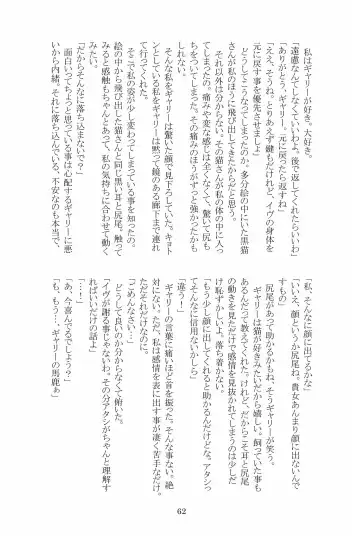 私はギャリーが好き。大好き。
「遠慮なんてなくていいわよ。後で返してくれたらいいわ」
「ありがとう、ギャリー。元に戻ったら返すね」
「ええ、そうね。とりあえず鍵もだけれど、イヴの身体を
元に戻す事を優先させましょ」
どうしてこうなってしまったのか。多分絵の中にいた黒猫
さんが私のほうに飛び出してきたからだと思う。
それ以外は分からない。その猫さんが私の体の中に入っ
てしまったの。痛みや変な感じは全くなくて、驚いて尻も
ちをついてしまった。その痛みのほうがずっと強かったかも
しれない。
そんな私をギャリーは驚いた顔で見下ろしていた。キョト
ンとしている私をギャリーは黙って鏡のある廊下まで連れ
て行ってくれた。
そこで私の姿が少し変わってしまっている事を知ったの。
絵の中から飛び出した猫さんと同じ黒い耳と尻尾。触って
みると感触もちゃんとあって、私の気持ちに合わせて動く
みたい。
「だからそんなに落ち込まないで？」
面白いってちょっと思っている事は心配するギャリーに悪
いから内緒。それに落ち込んでいる、不安なのも本当で、
「私、そんなに顔に出てるかな」
「いいえ、顔というか尻尾ね。貴女あんまり顔に出ないんで
すもの」
尻尾があって助かるかもね、そうギャリーが笑う。
ギャリーは猫が好きみたいだから嬉しい。飼っていた事も
あるんだって教えてくれた。けれど、だからこそ耳と尻尾
の動きを見ただけで感情を見抜かれてしまうのは少しだ
け恥ずかしいよ。落ち着かない。
「もう少し顔に出してくれると助かるんだけどな。アタシっ
てそんなに信用ないかしら」
「違うー」
ギャリーの言葉に痛いほど首を振った。そんな事ない。絶
対にない。ただ、私は感情を表に出す事が凄く苦手なだけ。
ただそれだけなのに。
「ごめんなさい…」
どうして良いのか分からなくて俯いた。
「イヴが謝る事じゃないわ。その分アタシがちゃんと理解す
ればいいだけの話よ」
「…！」
「あ、今喜んでるでしょう？」
「も、もう…ギャリーの馬鹿ぁ」
62